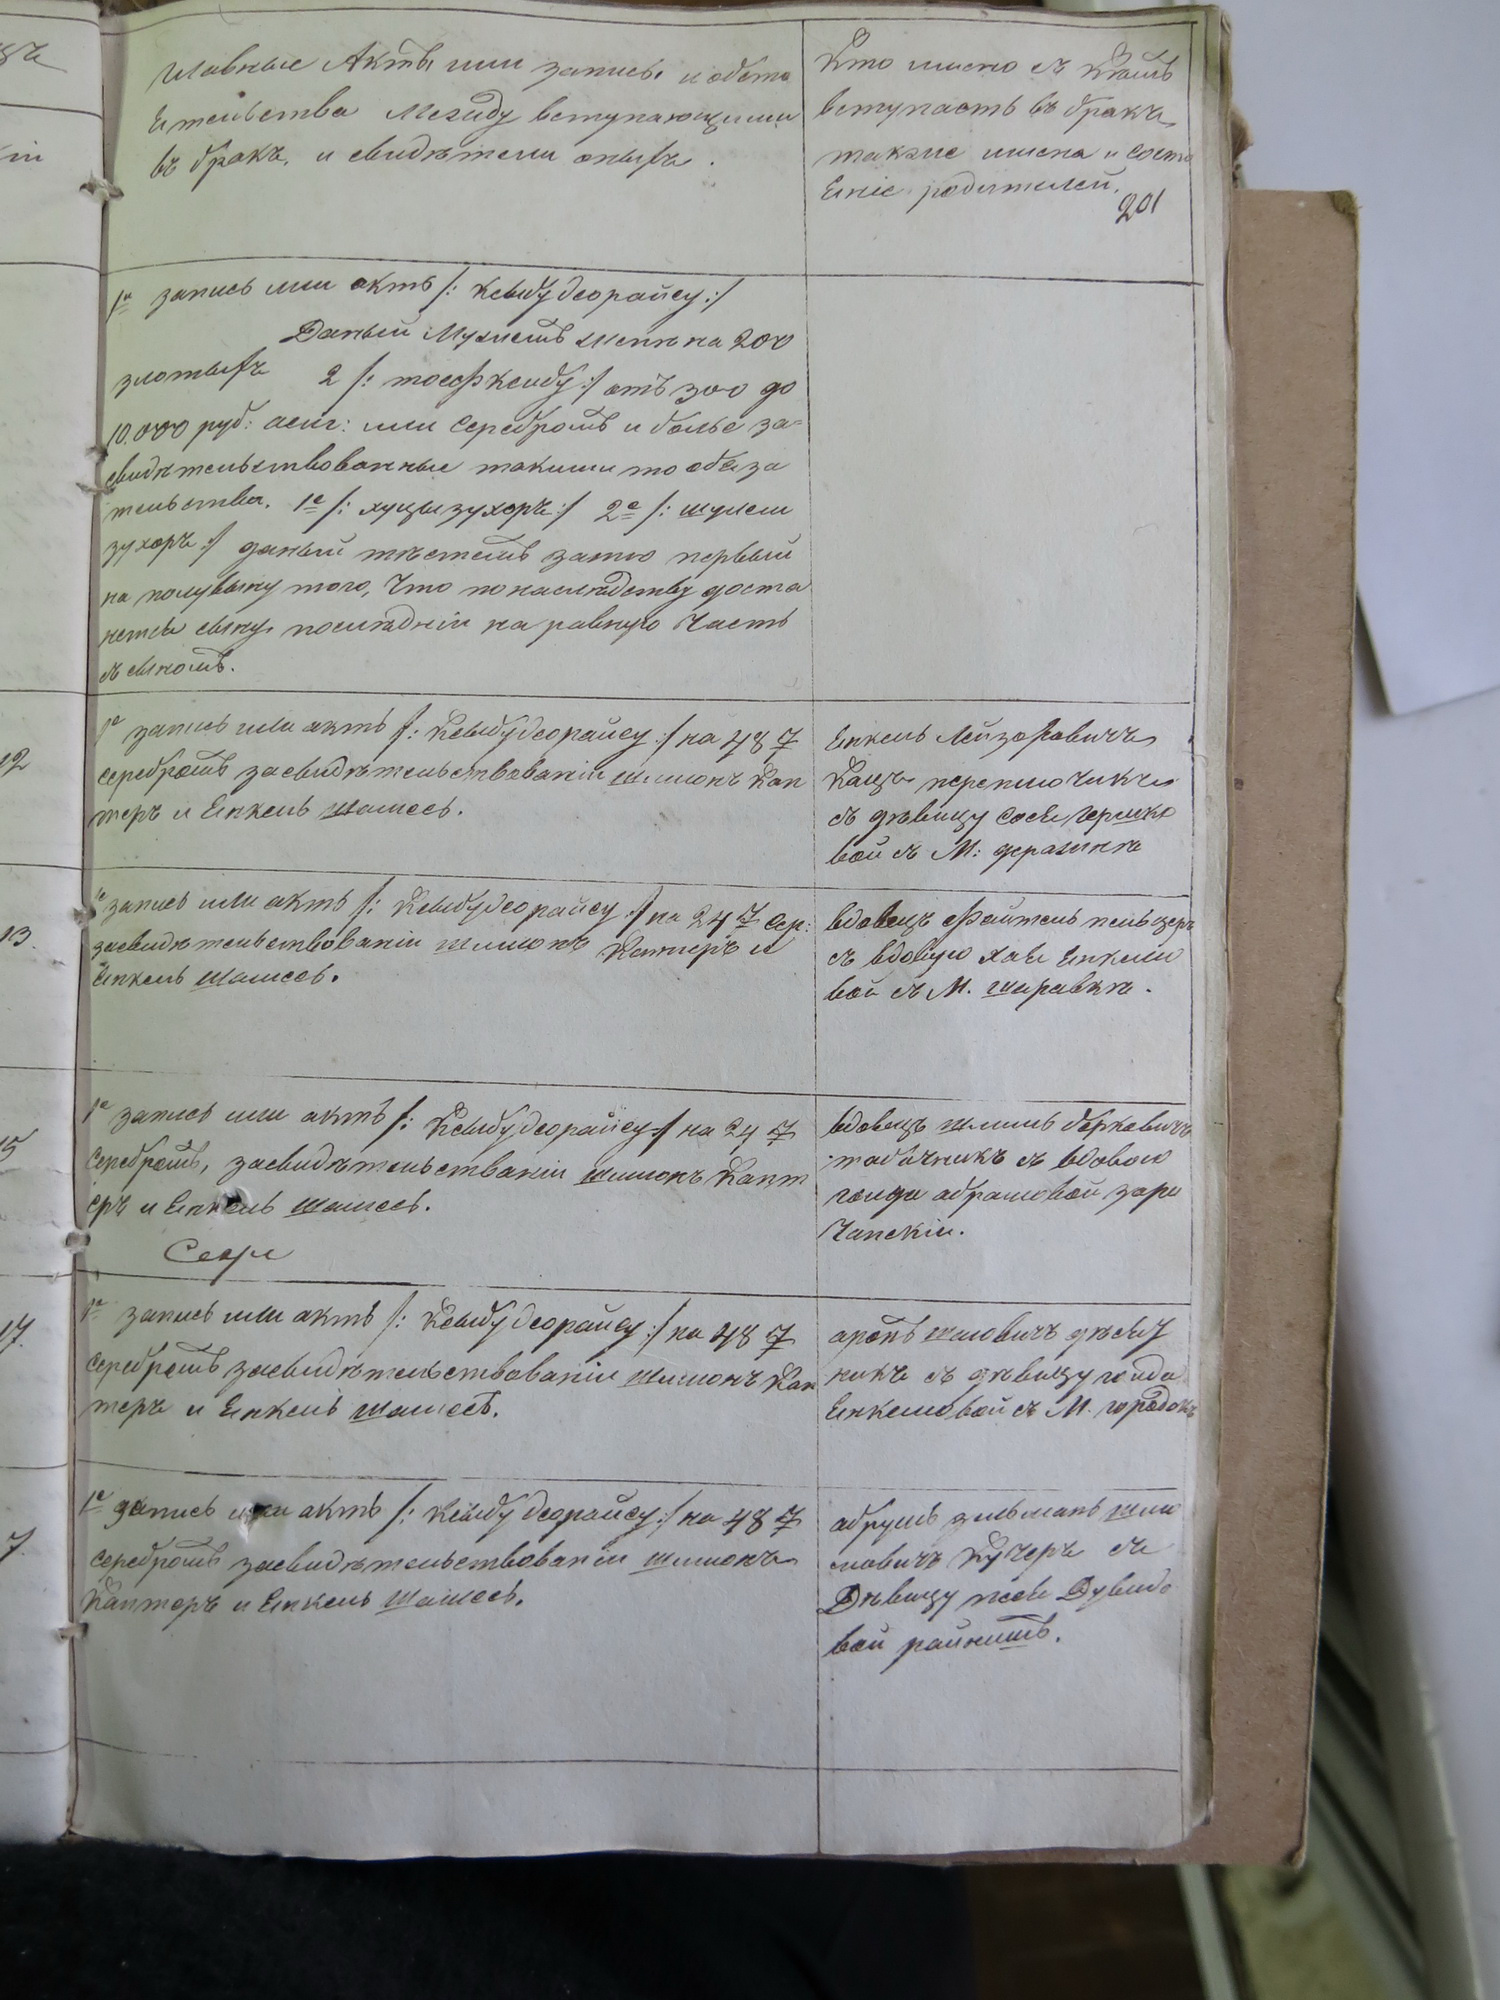 Главные Акты или запись и обяза
тельства Между вступающими
въ бракъ, и свидѣтели оныхъ.
Кто имено съ Кѣмъ
вступаетъ въ бракъ,
также имена и состо
яніе родителей.
201
1е запись или актъ /: Ксыбу деорайсу :/
Даный Мужемъ женѣ на 200
злотыхъ 2 /: тосфксибу :/ отъ 300 до
10.000 руб: асиг: или серебромъ и более за-
свидѣтельствованные такими то обяза
тельства. 1е /: хуцызухоръ :/ 2е /: шулем
зухоръ :/ даный тѣстемъ затю первый
на полувыну того, Что по наслѣдству доста
нетсе сыну, послѣдній на равную часть
съ сыномъ.
12
1е запись или актъ /: Ксыбу деорайсу :/ на 48 7
серебромъ засвидѣтельствованіи Шлиомъ Кан
теръ и Енкель Шамесъ.
Енкель Лейзоровичъ
Кацъ переплючикъ
съ дѣвицу Сося Гершко
вой съ М: Деражнѣ
13.
1е запись или актъ /: Ксыбу деорайсу :/ на 24 7 сер:
засвидѣтельствованіи Шлиомъ Кантеръ и
Енкель Шамесъ.
вдовецъ Файтель пельцеръ
съ вдовую Хая Енкели
вой съ М. Шаравкѣ.
15
1е запись или актъ /: Ксыбу деорайсу :/ на 24 7
серебромъ, засвидѣтельстваніи Шлиомъ Кант
еръ и Енкель Шамесъ.
вдовецъ Шлиомъ берковичъ
табачникъ съ вдовою
голда абрамовой заре
чанскій.
17.
1е запись или актъ /: Ксыбу деорайсу :/ на 48 7
серебромъ засвидѣтельствованіи Шлиомъ Кан
теръ и Енкель Шамесъ.
аронъ
никъ съ дѣвицу голда
Енкелювой съ М. городокъ
7.
1е запись или актъ /: Ксыбу деорайсу :/ на 48 7
серебромъ засвидѣтельствованіи Шлиомъ
Кантеръ и Енкель Шамесъ.
абрумъ зельманъ Шлио
мовичъ Кучеръ съ
Дѣвицу песя Дувидо
вой